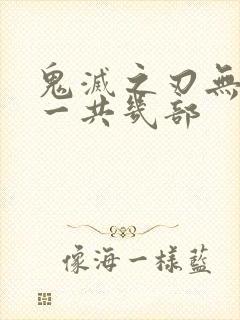 鬼滅之刃無
一共幾部
像海一樣藍